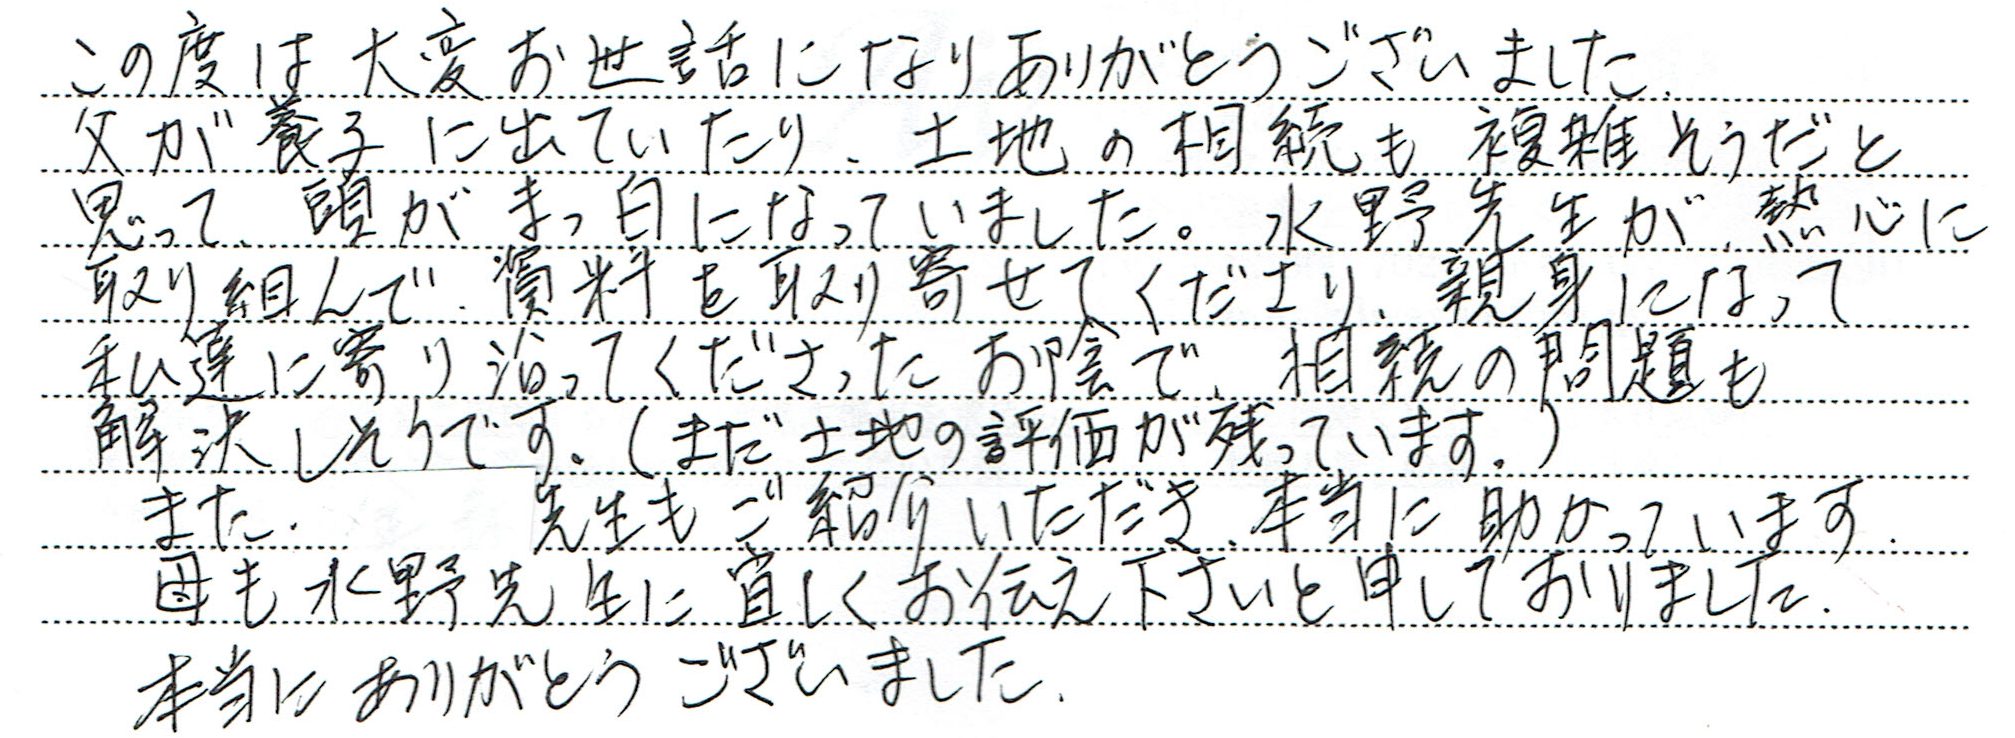 この度は大変お世話になりありがとうございました.
父が養子に出ていたり、土地の相続も複雑そうだと
思って、頭がまっ白になっていました。水野先生が、熱心に
取り組んで、資料を取り寄せてくださり、親身になって
私達に寄り沿ってくださったお陰で、相続の問題も
解決しそうです。(まだ土地の評価が残っています.)
また、先生もご紹介いただき、本当に助かっています.
母も水野先生に宜しくお伝え下さいと申しておりました.
本当にありがとうございました.